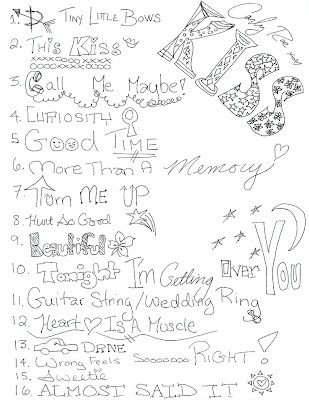 1. Tiny Little Bows
2. This Kiss
3. Call Me Maybe!
4. CURIOSITY
5 GOOD TIME
6. More Than A Memory
7. Turn ME UP
8. Hurt So Good
9. Beautiful
10. Tonight I'm Getting Over You
11. Guitar String/Wedding Ring
12. Heart Is A Muscle
13. DRIVE
14. Wrong Feels Soooooooo RIGHT!
15. Sweetie
16. ALMOST SAID IT